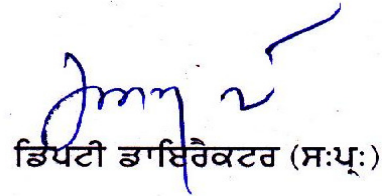 ਡਿਪਟੀ ਡਾਇਰੈਕਟਰ (ਸ:ਪ੍ਰ:)